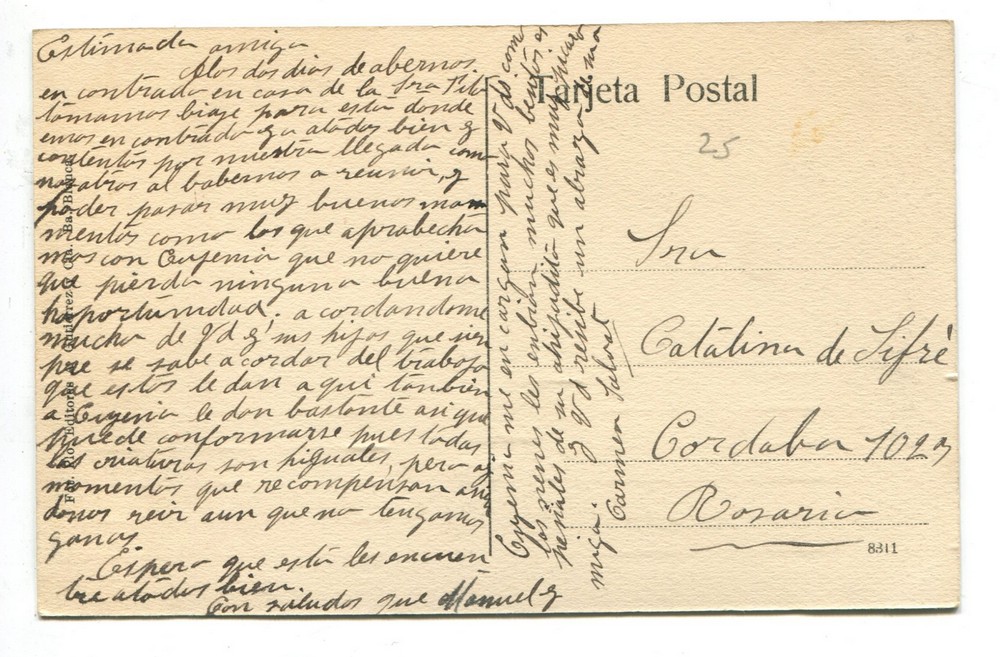 Estimada amiga
Alos dos dias de abernos
en contrado en casa de la Sra
tomamos biaje para esta donde
emos en contrado ya atodos bien y
contentos por nuestra llegada como
nosatros al babernos a reunir, y
poder pasar muy buenos mom
mentos como los que aprabecha
mos con Eugenia que no quiere
que pierda ninguna buena
haportunidad. a cordandome
mucho de Vd y sus hijos que siem
pre se sabe a cordar del trabajo
que estos le dan aqui tanbien
a Eugenia le dan bastante asi que
puede conformarse pues todas
las criaturas son higuales, pero ay
momentos que recompensan
donos reir aun que no tengamos
ganas
Espero que esta les encuen
tre atodos bien.
Con saludos que Manuel y
Eugenia me en cargan para Vds como
los nenes les enbian muchos besitos es
peciales de su ahijadito que es muy picaro
y Vd resibe un abrazo de su a
miga.
Carmen
Tarjeta Postal
25
Sra
Catalina de Sifré
Cordaba 102
Rosario
8311
Editores Gutiérrez y Cía. - Bahía Blanca